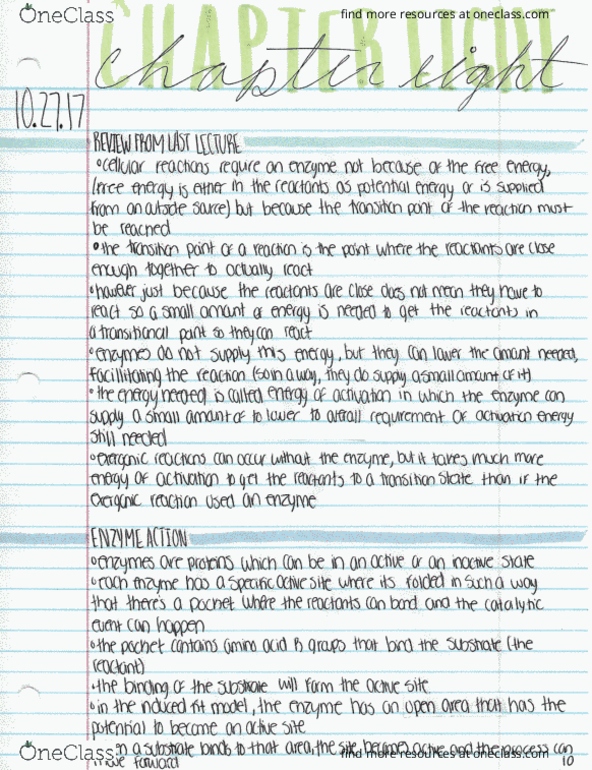 OneClass
find more resources at oneclass.com
CHAPTER EIGHT
chapter eight
10.27.17
REVIEW FROM LAST LECTURE
•cellular reactions require an enzyme not because of the free energy,
(free energy is either in the reactants as potential energy or is supplied
from an outside source) but because the transition point of the reaction must
be reached
•the transition point of a reaction is the point where the reactants are close
enough together to actually react
•however just because the reactants are close does not mean they have to
react so a small amount of energy is needed to get the reactants in
a transitional point so they can react
•enzymes do not supply this energy, but they can lower the amount needed,
facillitating the reaction (so in a way, they do supply a small amount of it)
•the energy needed is called energy of activation in which the enzyme can
supply a small amount of to lower to overall requirement of activation energy
still needed
•exergonic reactions can occur without the enzyme, but it takes much more
energy of activation to get the reactants to a transition state than if the
exergonic reaction used an enzyme
ENZYME ACTION
•enzymes are proteins which can be in an active or an inactive state
•each enzyme has a specific active site where its folded in such a way
that there's a pocket where the reactants can bond and the catalytic
event can happen
•the pocket contains amino acid R groups that bind the substrate (the
reactant)
•the binding of the substrate will form the active site
•in the induced fit model, the enzyme has an open area that has the
potential to become an active site
a substrate binds to that area, the site becomes active and the process can
move forward
OneClass
find more resources at oneclass.com
10